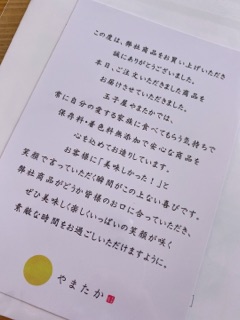 この度は、弊社商品をお買い上げいただき
誠にありがとうございました。
本日、ご注文いただきました商品を
お届けさせていただきました。
玉子屋やまたかでは、
常に自分の愛する家族に食べてもらう気持ちで
保存料・着色料無添加で安心な商品を
心を込めてお造りしています。
お客様に「美味しかった!」と
笑顔で言っていただく瞬間がこの上ない喜びです。
弊社商品がどうか皆様のお口に合っていただき、
ぜひ美味しく楽しくいっぱいの笑顔が咲く
素敵な時間をお過ごしいただけますように。
やまたか